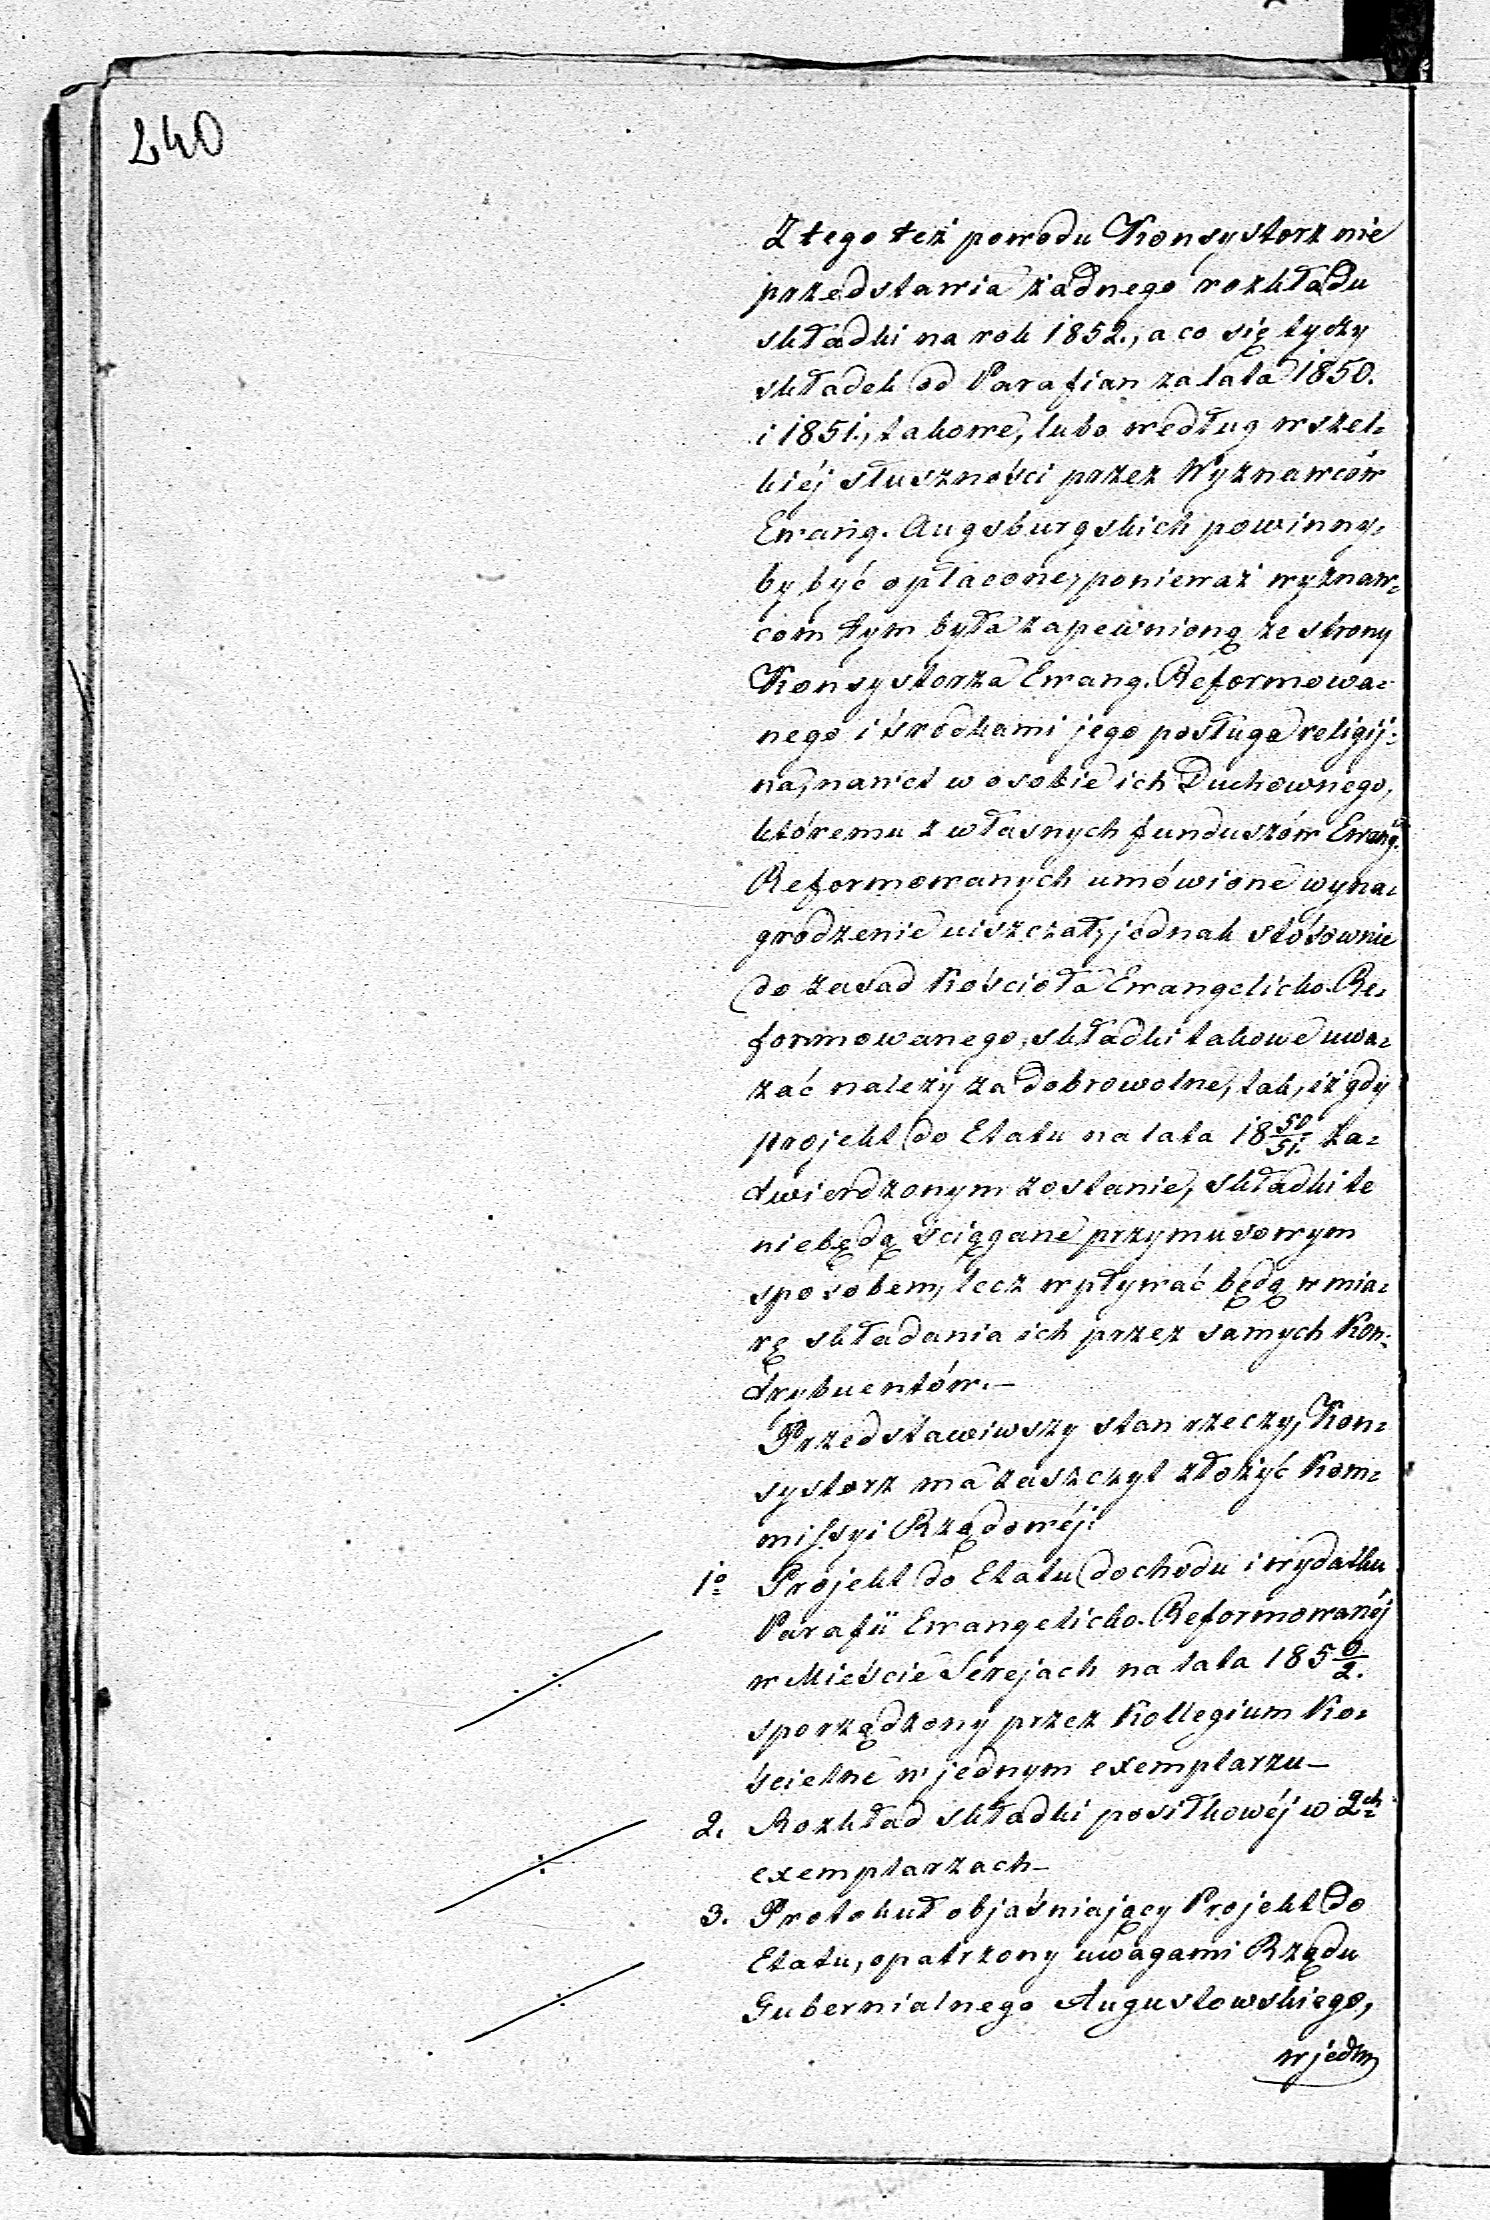 240
Z tego też powodu Konsystorz nie
przedstawia żadnego rozkładu
składki na rok 1852., a co się tyczy
składek od Parafian za lata 1850.
i 1851., takowe, lubo według wszel=
kiéj słuszności przez Wyznawców
Ewang. Augsburgskich powinny=
by być opłacone, ponieważ wyznaw=
com tym była zapewnioną ze strony
Konsystorza Ewang. Reformowa=
nego i środkami jego posługa religij=
na, nawet w osobie ich Duchownego,
któremu z własnych funduszów Ewang.
Reformowanych umówione wyna=
grodzenie uiszczał, jednak stósownie
do zasad Kościoła Ewangelicko-Re=
formowanego, składki takowe uwa=
żać należy za dobrowolne, tak, iż gdy
projekt do Etatu na lata 18 50/51. za=
twierdzonym zostanie, składki te
niebędą ściągane przymusowym
sposobem, lecz wpływać będą w mia=
rę składania ich przez samych Kon=
trybuentów.—
Przedstawiwszy stan rzeczy, Kon=
systorz ma zaszczyt złożyć Kom=
missyi Rządowéj:
1o Projekt do Etatu dochodu i wydatku
Parafii Ewangelicko-Reformowanéj
w Mieście Serejach na lata 185 0/2.
sporządzony przez Kollegium Ko=
ścielne w jednym exemplarzu—
2. Rozkład składki posiłkowéj w 2ch
exemplarzach—
3. Protokuł objaśniający Projekt do
Etatu, opatrzony uwagami Rządu
Gubernialnego Augustowskiego,
w jedm